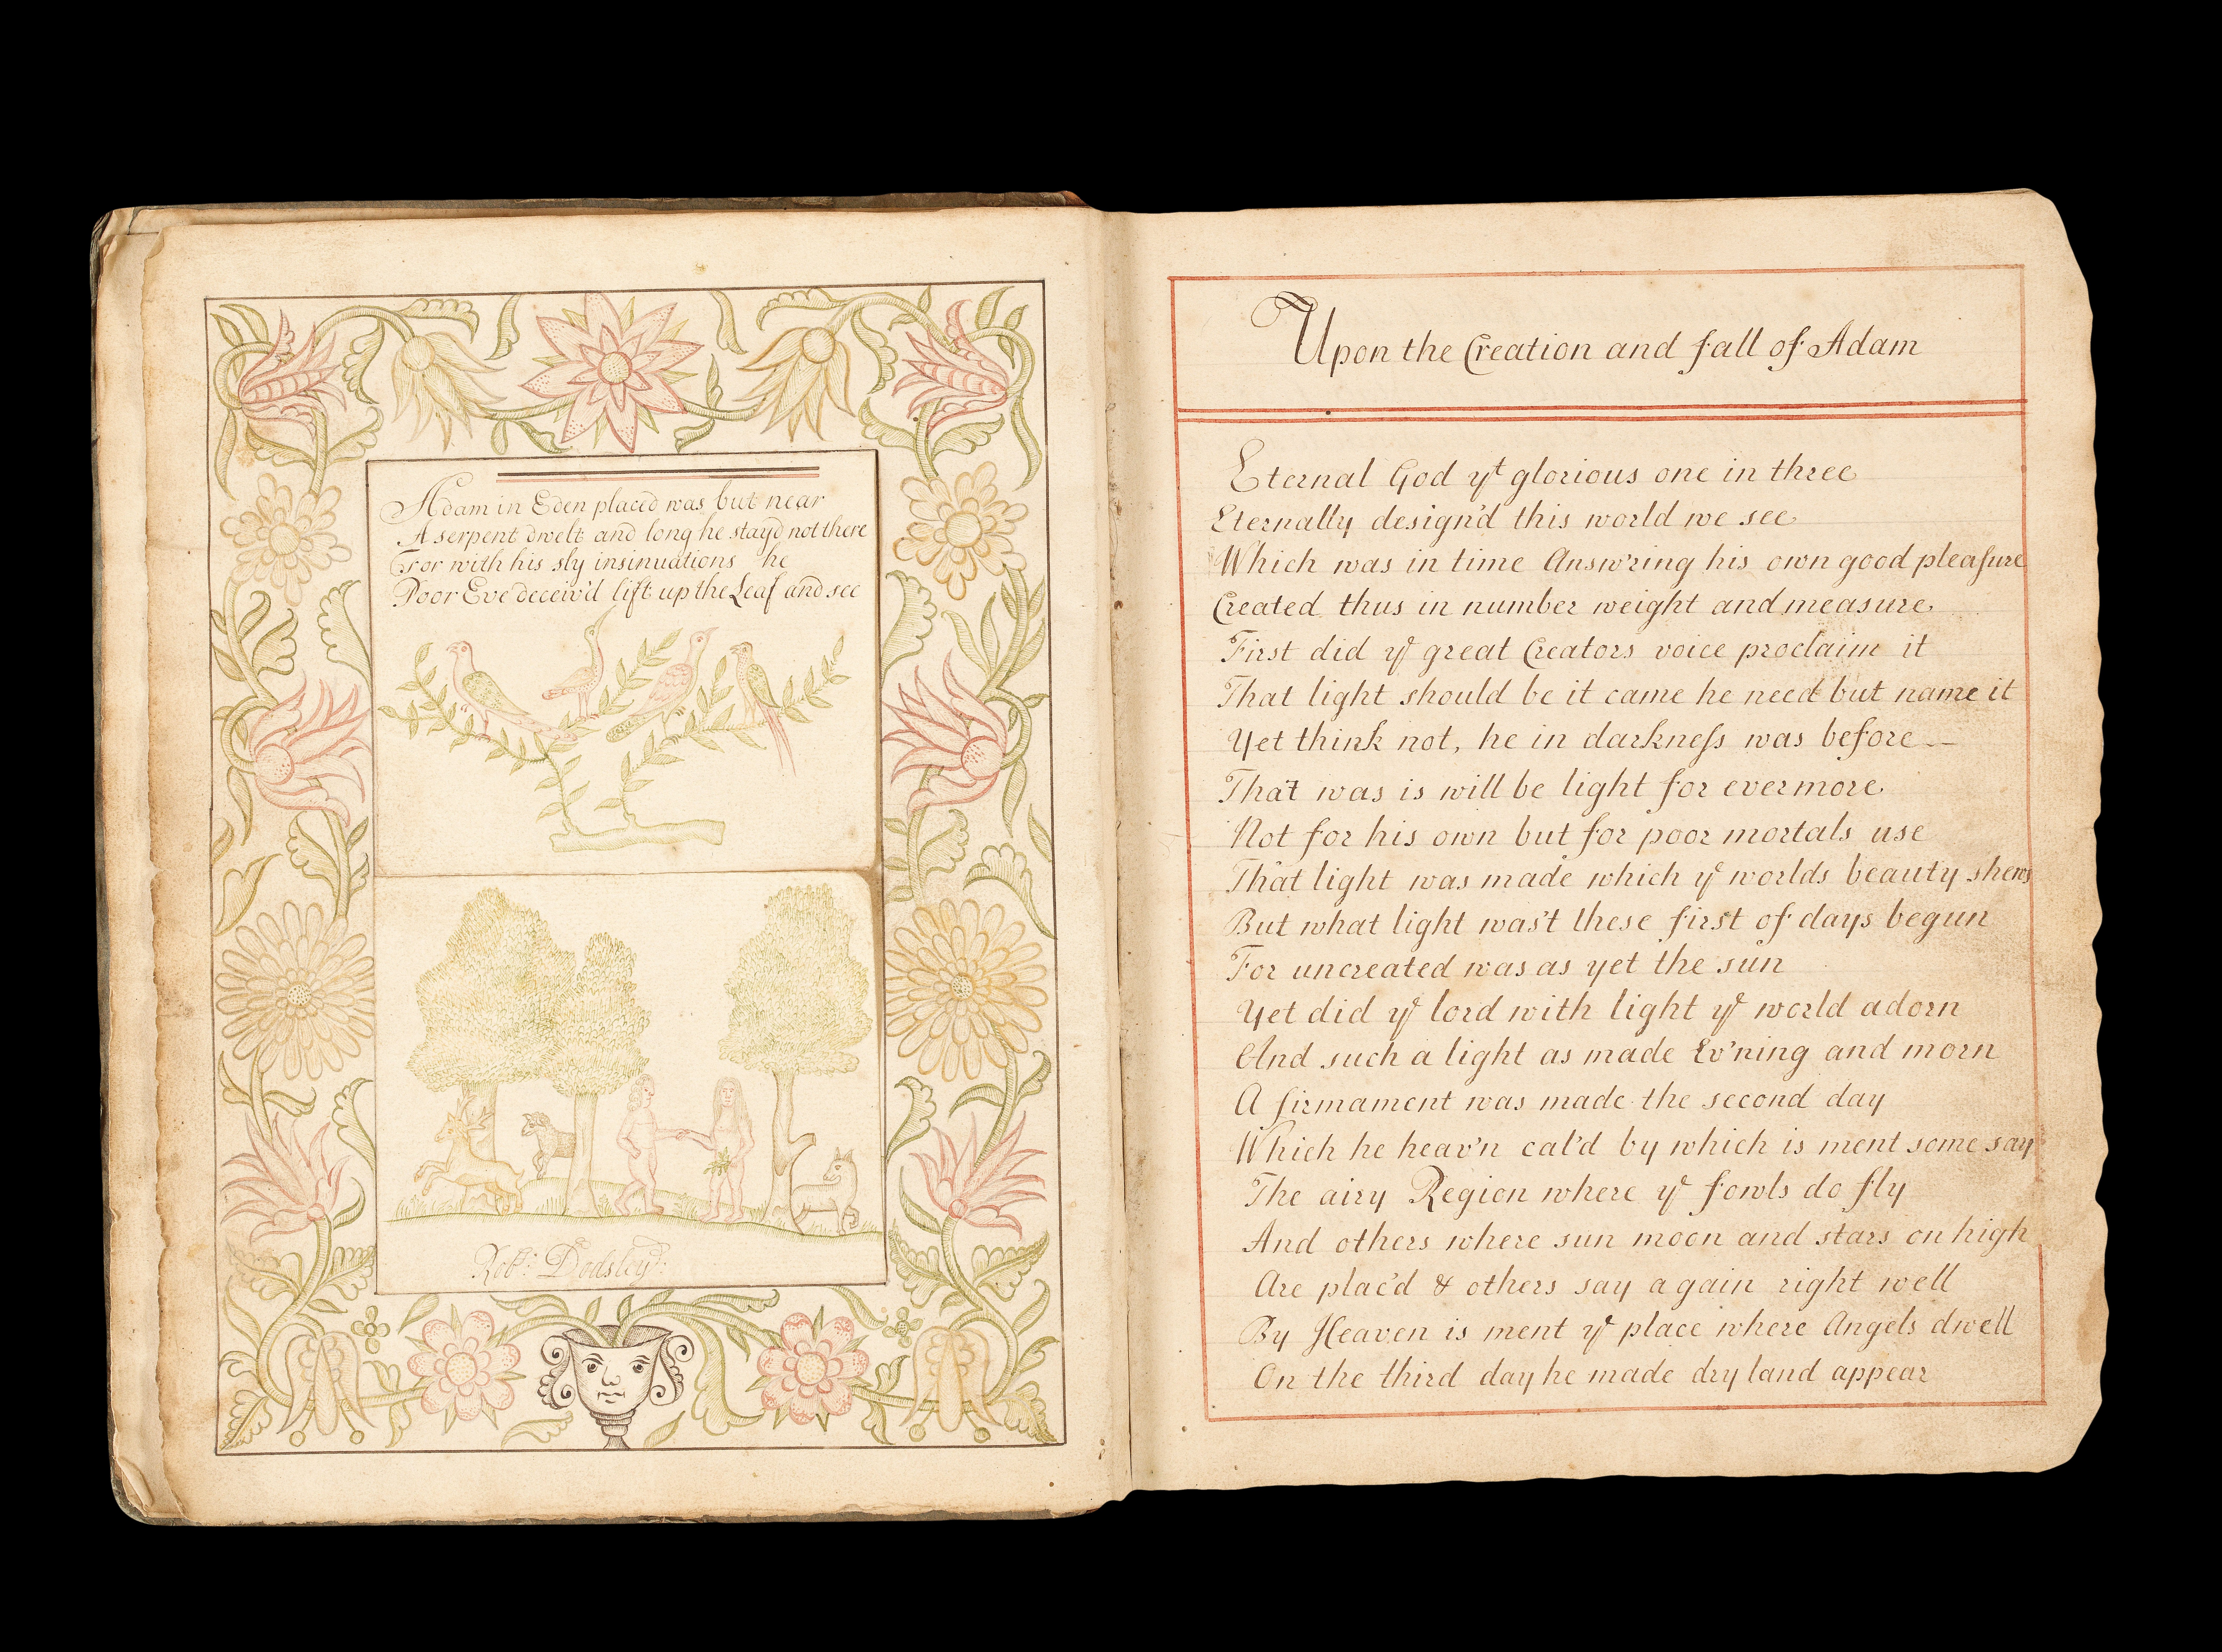 Adam in Eden placed was but near
A serpent dwelt and long he stay'd not there
For with his sly insinuations he
Poor Eve deceiv'd lift up the Leaf and see
Robt: Dodsley
Upon the Creation and fall of Adam
Eternal God yt glorious one in three
Eternally design'd this world we see
Which was in time Answ'ring his own good pleaſure
Created thus in number weight and measure
First did ye great Creators voice proclaim it
That light should be it came he need but name it
Yet think not, he in darkneſs was before
That was is will be light for evermore
Not for his own but for poor mortals use
That light was made which ye worlds beauty shews
But what light was't these first of days begun
For uncreated was as yet the sun
Yet did ye lord with light ye world adorn
And such a light as made Ev'ning and morn
A firmament was made the second day
Which he heav'n cal'd by which is ment some say
The airy Region where ye fowls do fly
And others where sun moon and stars on high
Are plac'd & others say again right well
By Heaven is ment ye place where Angels dwell
On the third day he made dry land appear